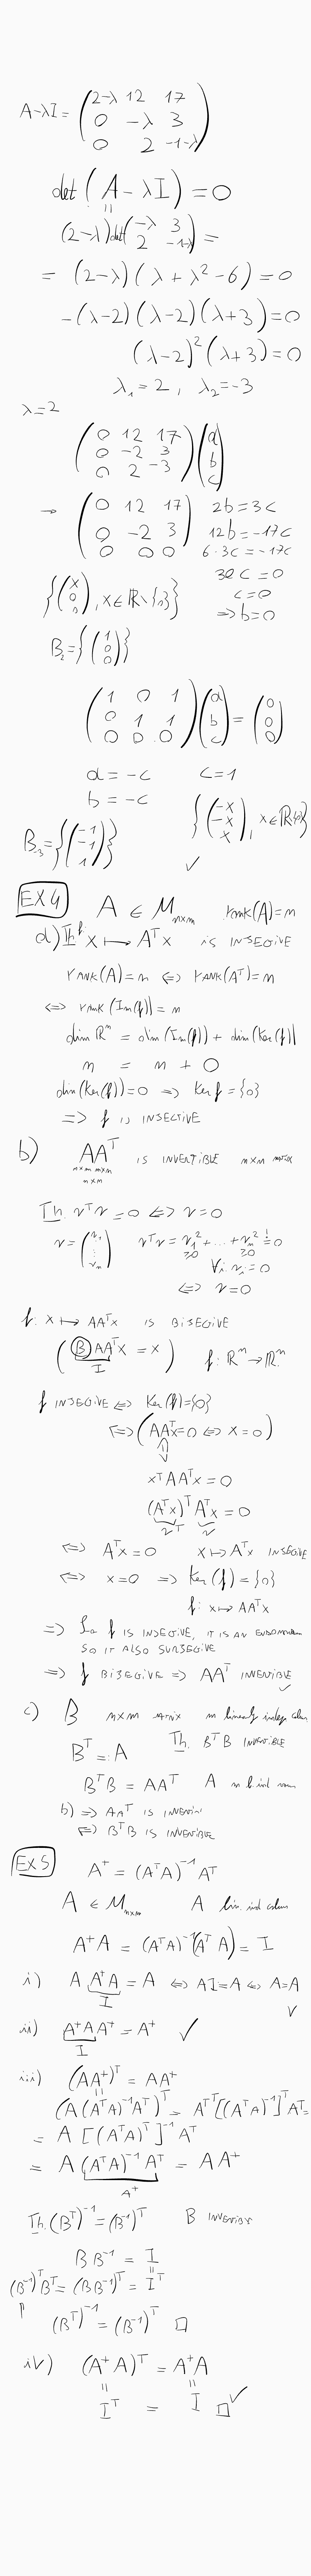 A-λI = (2-λ 12 17
0 -λ 3
0 2 -1-λ)
det(A-λI) = 0
(2-λ)det(-λ 3
2 -1-λ) =
= (2-λ)(λ+λ²-6) = 0
-(λ-2)(λ-2)(λ+3) = 0
(λ-2)²(λ+3) = 0
λ₁ = 2, λ₂ = -3
λ = 2
(0 12 17
0 -2 3
0 2 -3)(a
b
c)
→ (0 12 17
0 -2 3
0 0 0)
2b = 3c
12b = -17c
6·3c = -17c
c = 0
⇒ b = 0
{(x
0
0), x ∈ ℝ\{0}}
B₂ = {(1
0
0)}
(1 0 1
0 1 1
0 0 0)(a
b
c) = (0
0
0)
a = -c c = 1
b = -c {(-x
-x
x), x ∈ ℝ\{0}}
B₋₃ = {(-1
-1
1)} ✓
EX 4 A ∈ M n×m rank(A) = n
a) Th f: x ↦ Aᵀx is INJECTIVE
RANK(A) = n ⇔ RANK(Aᵀ) = n
⇔ rank(Im(f)) = n
dim ℝⁿ = dim(Im(f)) + dim(Ker(f))
n = n + 0
dim(Ker(f)) = 0 ⇒ Ker f = {0}
⇒ f is INJECTIVE
b) AAᵀ IS INVERTIBLE n×n matrix
n×m m×n
n×n
Th. vᵀv = 0 ⇔ v = 0
v = (v₁
⋮
vₙ) vᵀv = v₁² + ... + vₙ² = 0
≥0 ≥0
∀i vᵢ = 0
⇔ v = 0
f: x ↦ AAᵀx IS BIJECTIVE
((B)AAᵀx = x) f: ℝⁿ → ℝⁿ
I
f INJECTIVE ⇔ Ker(f) = {0}
⇔ (AAᵀx = 0 ⇔ x = 0)
xᵀAAᵀx = 0
(Aᵀx)ᵀAᵀx = 0
vᵀ v
⇔ Aᵀx = 0 x ↦ Aᵀx INJECTIVE
⇔ x = 0 ⇒ Ker(f) = {0}
f: x ↦ AAᵀx
⇒ So f IS INJECTIVE, IT IS AN ENDOMORPHISM
SO IT ALSO SURJECTIVE
⇒ f BIJECTIVE ⇒ AAᵀ INVERTIBLE ✓
c) B n×m MATRIX m linearly indep column
Bᵀ =: A Th. BᵀB INVERTIBLE
BᵀB = AAᵀ A n l. ind row
b) ⇒ AAᵀ IS INVERTIBLE
⇔ BᵀB IS INVERTIBLE
EX 5 A⁺ = (AᵀA)⁻¹Aᵀ
A ∈ M n×m A lin. ind column
A⁺A = (AᵀA)⁻¹(AᵀA) = I
i) A A⁺A = A ⇔ AI = A ⇔ A = A
I ✓
ii) A⁺AA⁺ = A⁺ ✓
I
iii) (AA⁺)ᵀ = AA⁺
(A(AᵀA)⁻¹Aᵀ)ᵀ = Aᵀᵀ[(AᵀA)⁻¹]ᵀAᵀ =
= A[(AᵀA)ᵀ]⁻¹Aᵀ
= A(AᵀA)⁻¹Aᵀ = AA⁺
A⁺
Th. (Bᵀ)⁻¹ = (B⁻¹)ᵀ B INVERTIBLE
BB⁻¹ = I
(B⁻¹)ᵀBᵀ = (BB⁻¹)ᵀ = Iᵀ
(Bᵀ)⁻¹ = (B⁻¹)ᵀ □
iv) (A⁺A)ᵀ = A⁺A
Iᵀ = I □ ✓